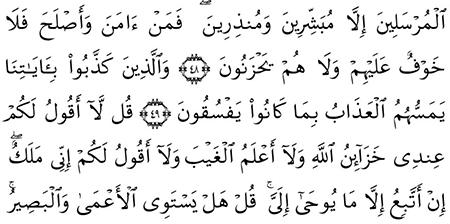 ٱلْمُرْسَلِينَ إِلَّا مُبَشِّرِينَ وَمُنذِرِينَ ۖ فَمَنْ ءَامَنَ وَأَصْلَحَ فَلَا
خَوْفٌ عَلَيْهِمْ وَلَا هُمْ يَحْزَنُونَ ﴿٤٨﴾ وَٱلَّذِينَ كَذَّبُوا۟ بِـَٔايَـٰتِنَا
يَمَسُّهُمُ ٱلْعَذَابُ بِمَا كَانُوا۟ يَفْسُقُونَ ﴿٤٩﴾ قُل لَّآ أَقُولُ لَكُمْ
عِندِى خَزَآئِنُ ٱللَّهِ وَلَآ أَعْلَمُ ٱلْغَيْبَ وَلَآ أَقُولُ لَكُمْ إِنِّى مَلَكٌ ۖ
إِنْ أَتَّبِعُ إِلَّا مَا يُوحَىٰٓ إِلَىَّ ۚ قُلْ هَلْ يَسْتَوِى ٱلْأَعْمَىٰ وَٱلْبَصِيرُ ۚ